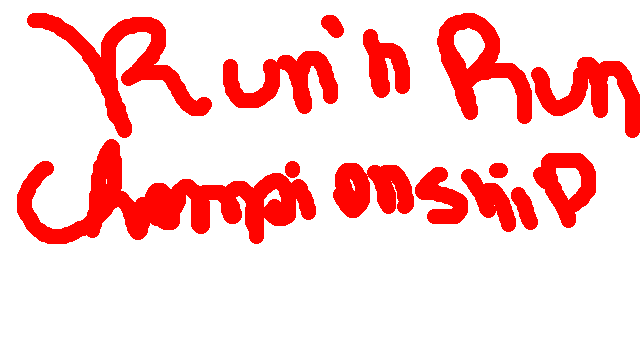 Run'n Run
Championship